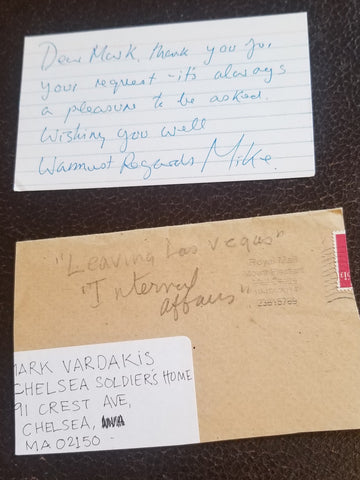 Dear Mark, thank you for
your request - it's always
a pleasure to be asked.
Wishing you well
Warmest Regards Mike
"Leaving Las Vegas"
"Internal
affairs"
Royal Mail
MARK VARDAKIS
CHELSEA SOLDIER'S HOME
91 CREST AVE,
CHELSEA,
MA 02150